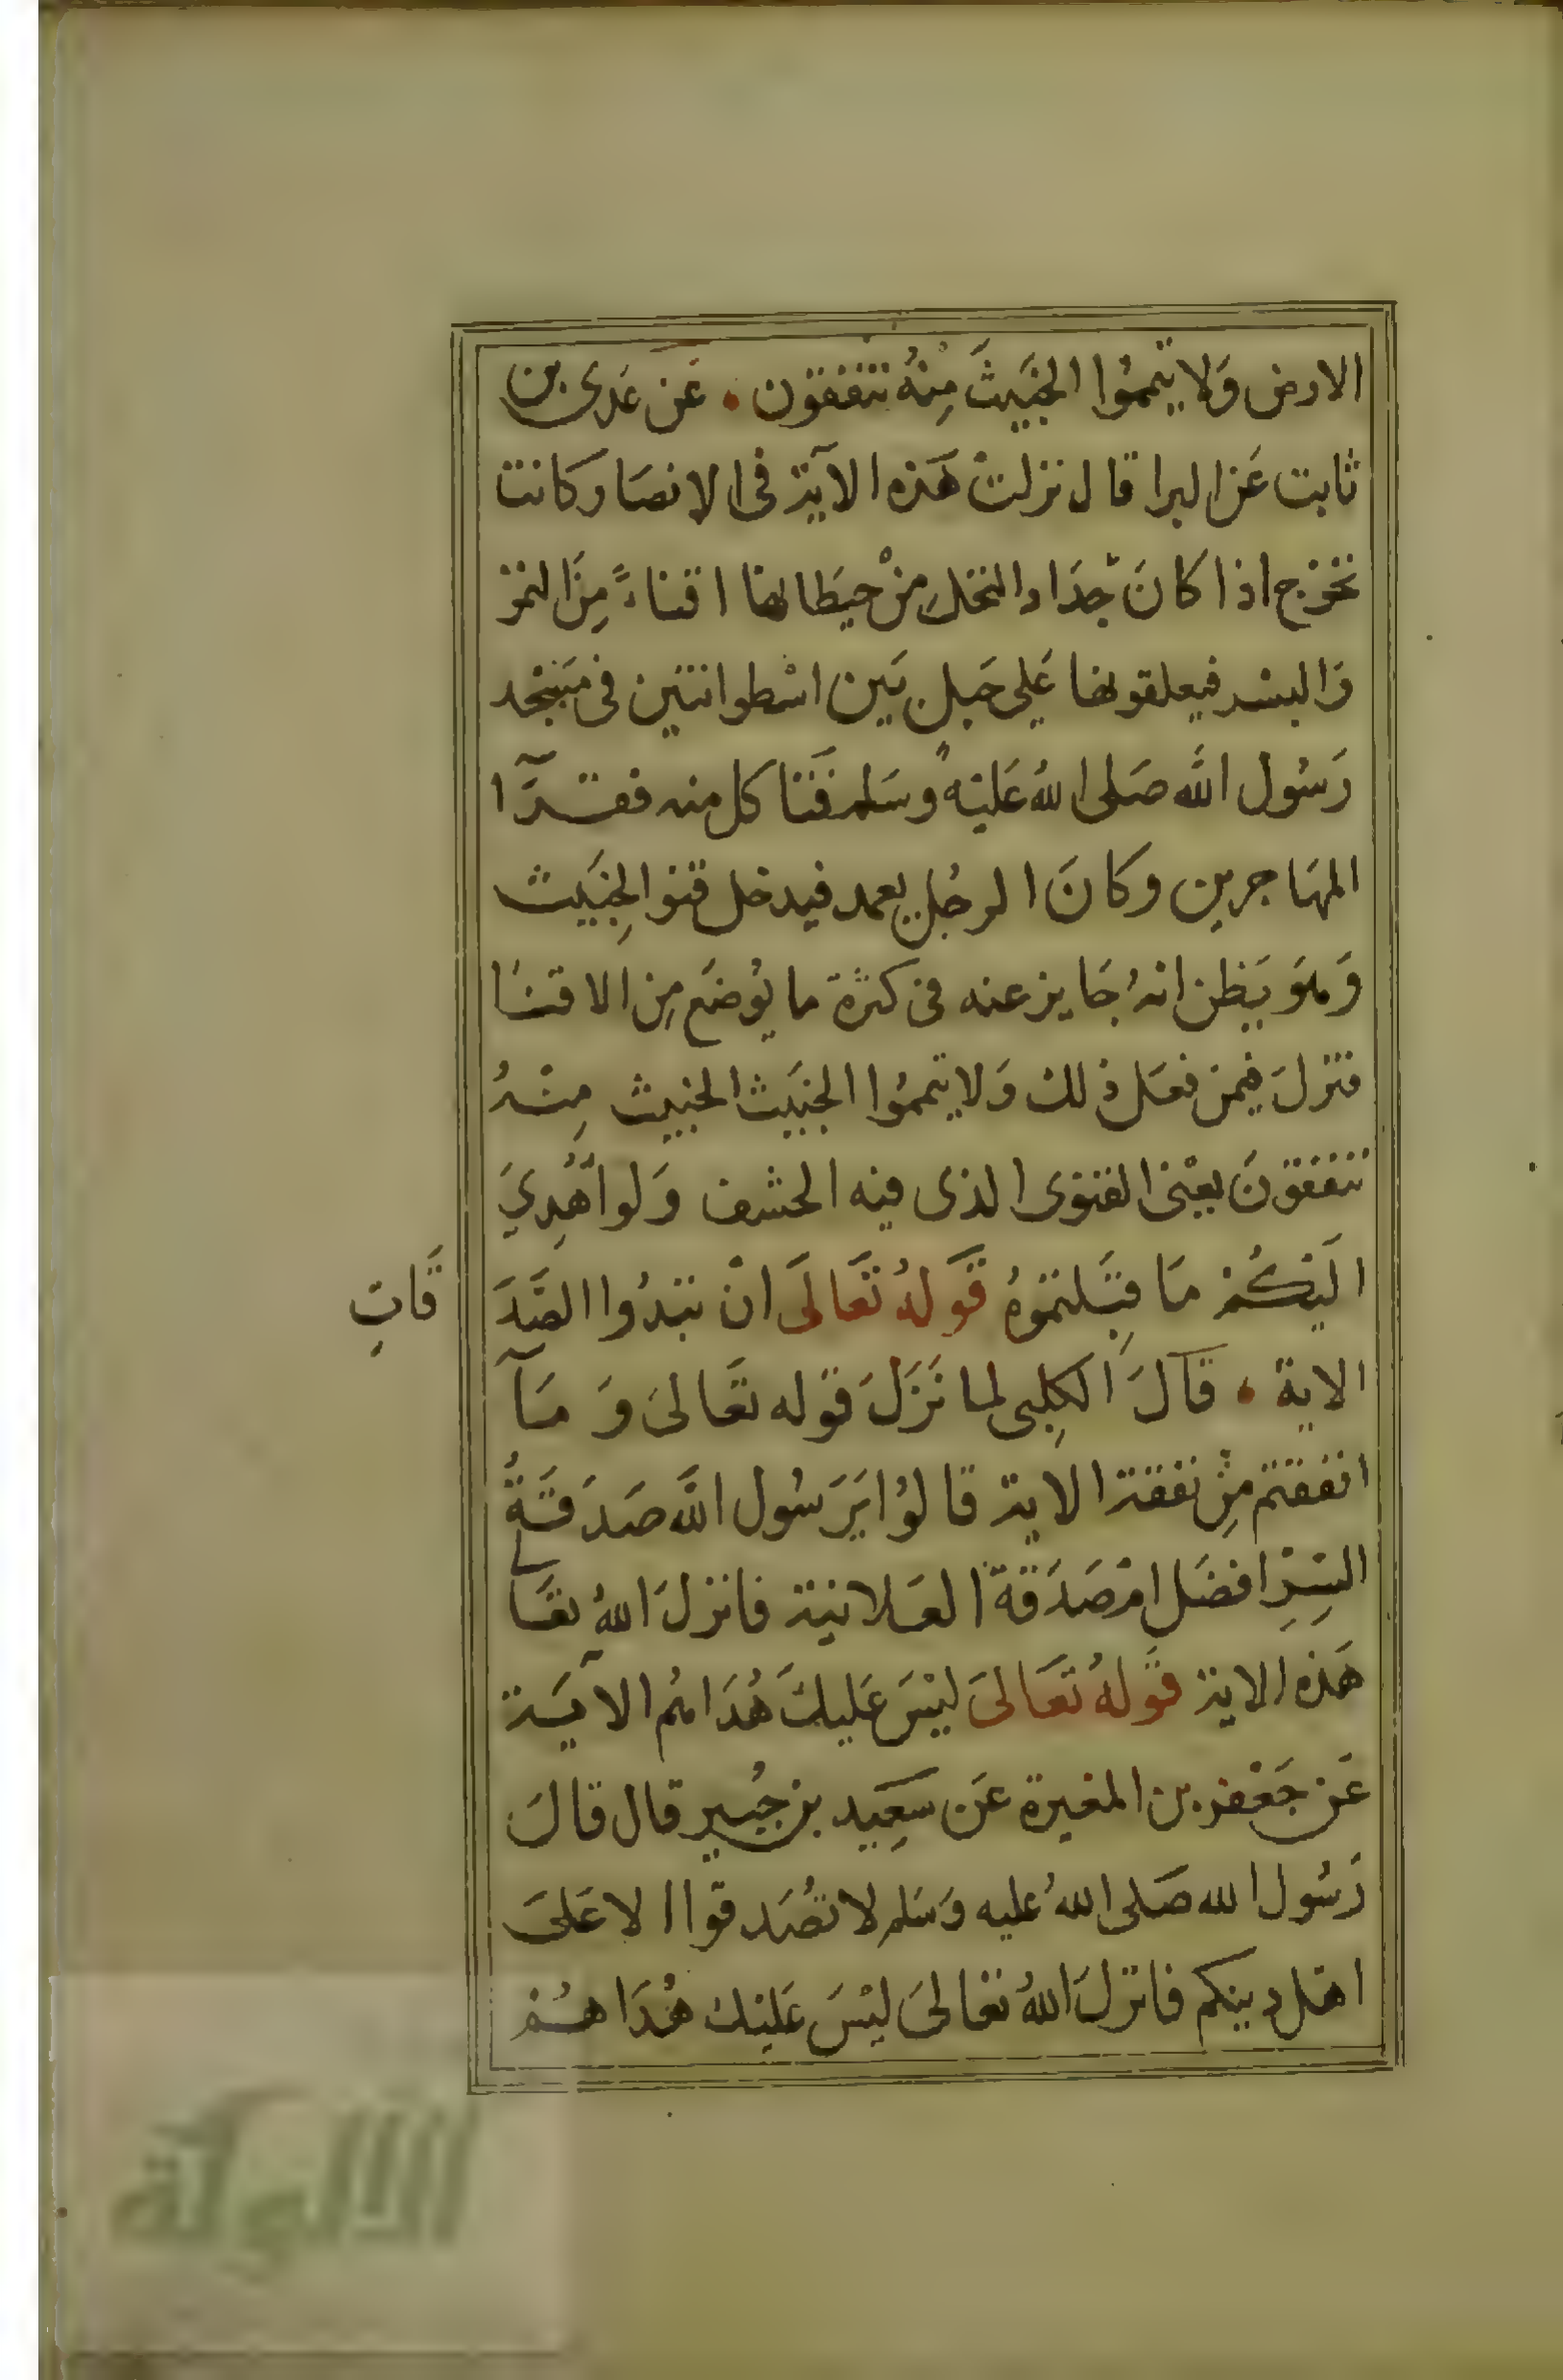 الارض وَلا تيمموُا الخَبَيثَ مِنْهُ تنفقوُن . عَن عَدى بن
ثابت عَن البرا قال نزلتْ هَذه الآية فى الانصَار كانت
تخرج اذا كانَ جِدَاد النخلِ مِنْ حيَطانها اقناءً مِنَ التمرْ
وَالبسْر فيعلقونها عَلى حَبل بَين اسْطوانتين فى مَسْجد
رَسُول الله صَلى اللهُ عَليْهِ وسَلم فَيَأكل منه فقرَآءِ
المهَاجرين وكانَ الرجُل يعمد فيدخل قنو الخِبَيث
وَهوَ يَظن انهُ جَايز عنه فى كثرة ما يُوضَع مِن الاقنَا
فنزلَ فيمن فعَل ذلك وَلا تيمموُا الخِبَيث الخبيث مِنْهُ
تنفقوُنَ يعْنى القنوى الذى فيه الحشف وَلو اُهْدِيَ
اليَكُمْ مَا قَبِلتمَوهُ قَولهُ تَعَالَى انْ تبْدُوا الصَّدَ
قَاتِ
الاية . قالَ الكلِبى لما نَزَلَ قوَله تعَالىَ وَ مَآ
انفقتم مِنْ نفقة الاية قالوُا يَرَسُول الله صَدَقَةُ
السِرِّ افضَل امْ صَدَقَة العَلانية فانزلَ اللهُ تعَالى
هَذه الاية قوَلهُ تَعَالىَ ليْسَ عَليكَ هُدَاهُم الآيَة
عَن جَعْفر بن المغيرة عَن سَعِيد بن جُبير قال قالَ
رَسُول الله صَلى اللهُ عليه وَسَلم لا تصَّدقوا الا عَلىَ
اهَل دينكم فانزلَ اللهُ تعَالىَ ليْسَ عَليْك هُدَاهُمْ
الألوكة